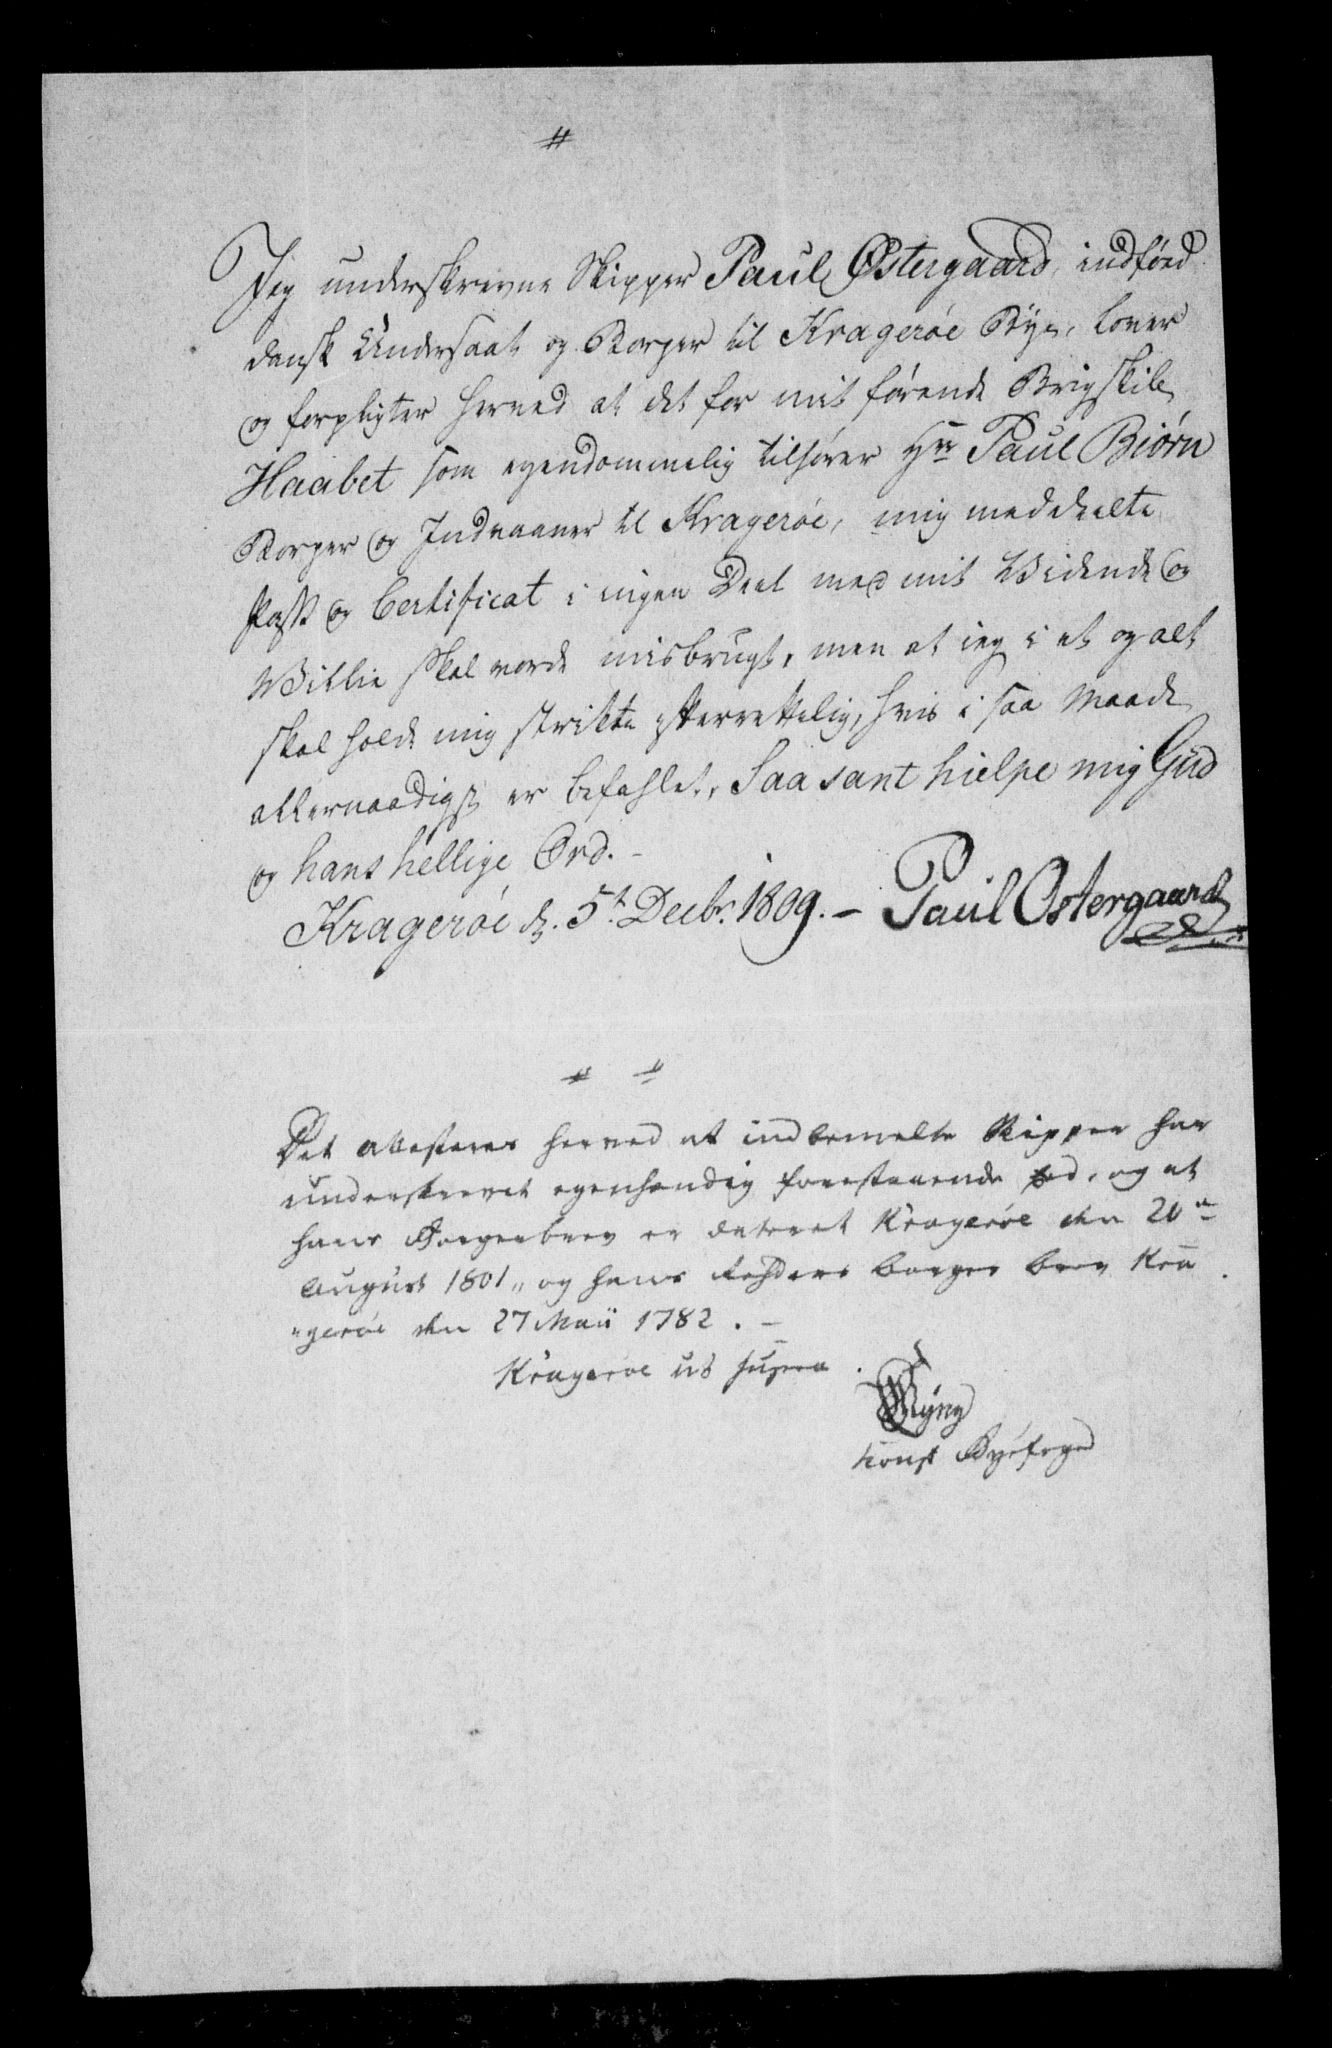 #
Jeg underskrevne Skipper Paul Østergaard, indföed
dansk Undersaat og Borger til Krageröe Bye, lover
og forpligter herved at det for mit förende Brigskib
Haabet som egendommelig tilhörer Hrr Paul Biörn
Borger og Indvaaner til Krageröe, mig meddeelte
Pass og Certificat i ingen Deel med mit Vidende og
Villie skal vorde misbrugt, men at ieg i et og alt
skal holde mig strikte efterrettelig, hvis i saa Maade
allernaadigst er befahlet, Saa sant hielpe mig Gud
og hans hellige Ord. -
Krageröe d. 5t Decbr. 1809. - Paul Østergaard
# #
Det attesteres herved at indbemelte Skipper har
underskrevet egenhændig forestaaende Eed, og at
hans Borgerbrev er dateret Krageröe den 20de
August 1801,, og hans Rehders borger brev Kra
"geröe den 27 Maii 1782. -
Krageröe ut supra.
const Byefoged